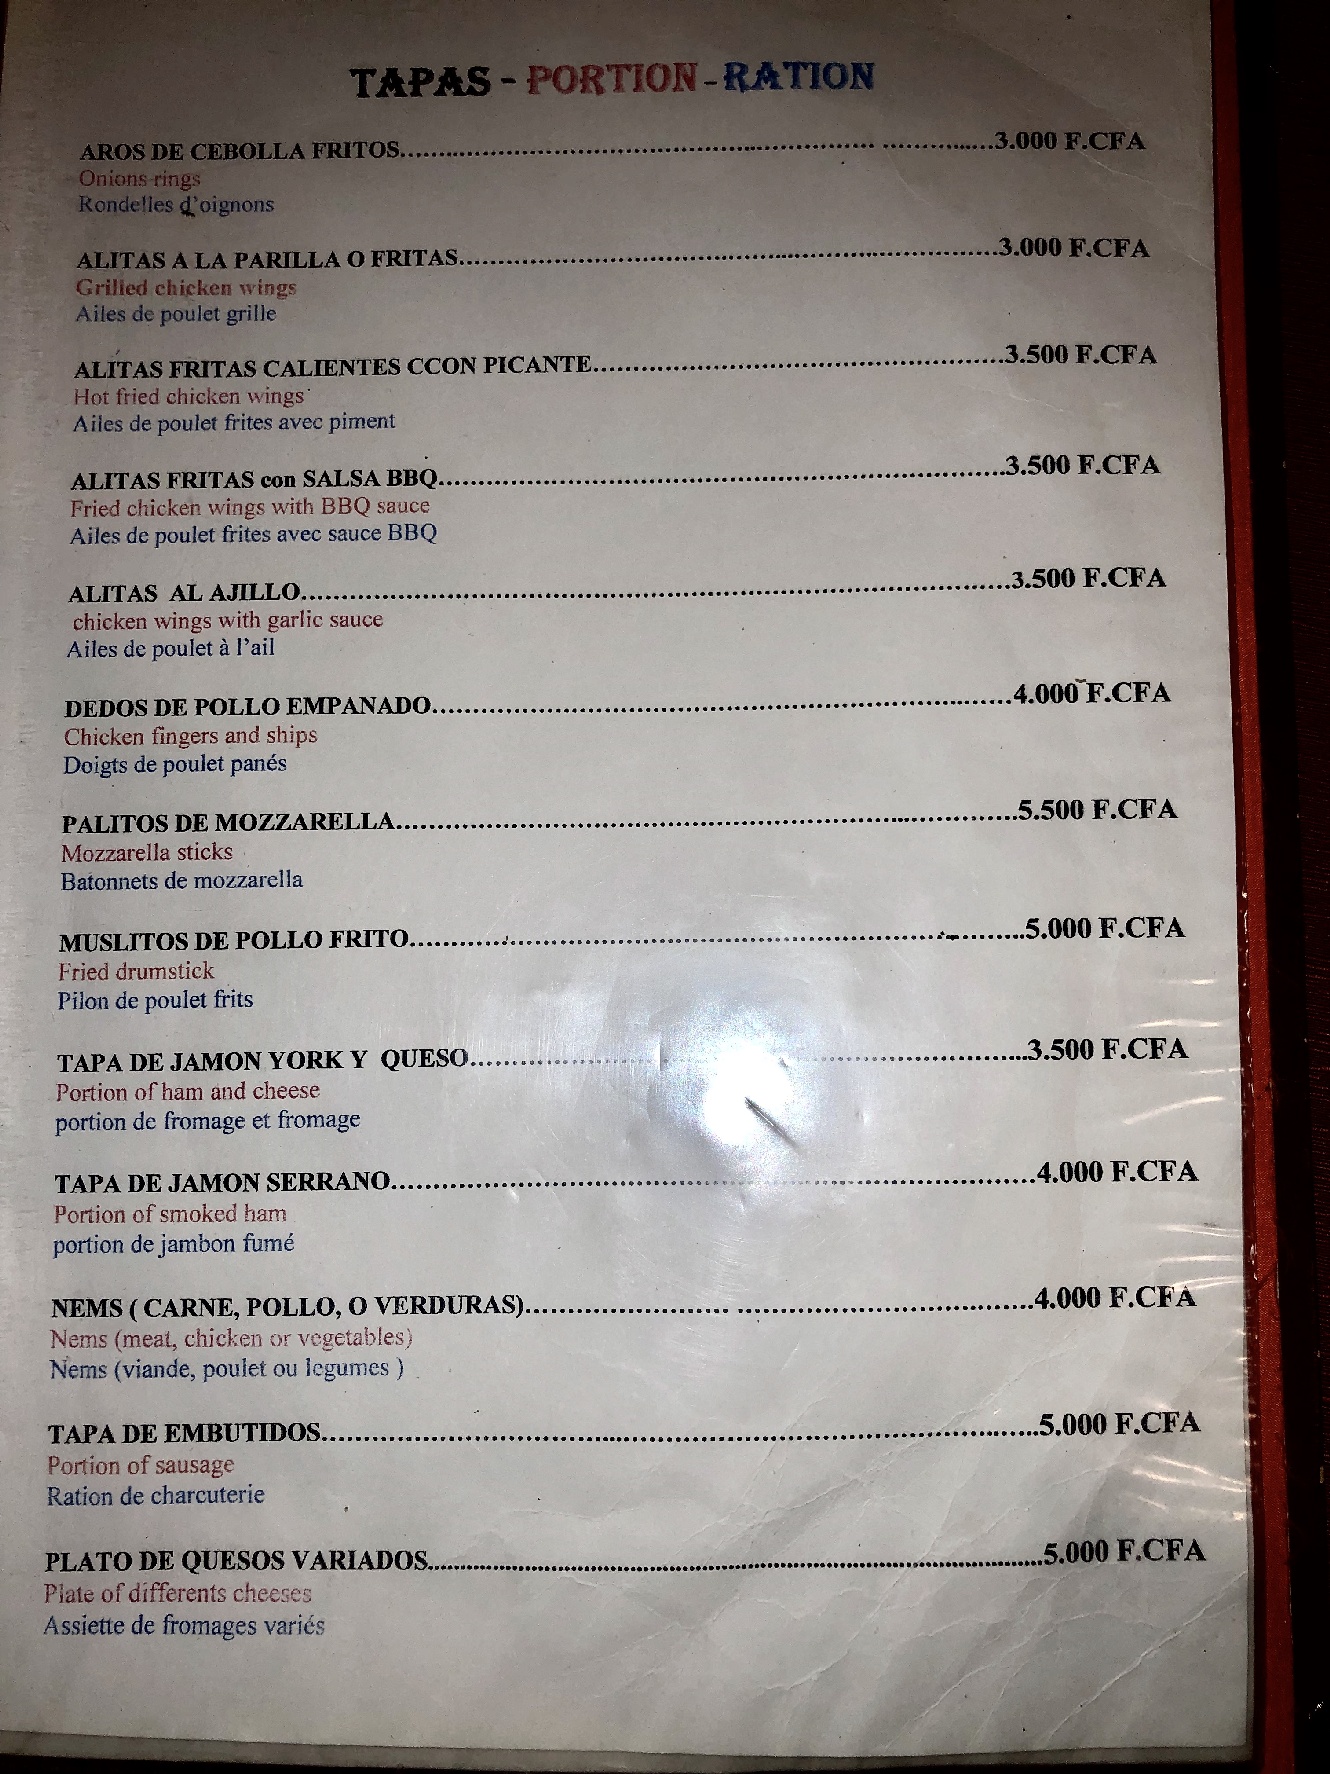 TAPAS - PORTION - RATION
AROS DE CEBOLLA FRITOS..........3.000 F.CFA
Onions rings
Rondelles d'oignons
ALITAS A LA PARILLA O FRITAS..........3.000 F.CFA
Grilled chicken wings
Ailes de poulet grille
ALITAS FRITAS CALIENTES CCON PICANTE..........3.500 F.CFA
Hot fried chicken wings
Ailes de poulet frites avec piment
ALITAS FRITAS con SALSA BBQ..........3.500 F.CFA
Fried chicken wings with BBQ sauce
Ailes de poulet frites avec sauce BBQ
ALITAS AL AJILLO..........3.500 F.CFA
chicken wings with garlic sauce
Ailes de poulet à l'ail
DEDOS DE POLLO EMPANADO..........4.000 F.CFA
Chicken fingers and ships
Doigts de poulet panés
PALITOS DE MOZZARELLA..........5.500 F.CFA
Mozzarella sticks
Batonnets de mozzarella
MUSLITOS DE POLLO FRITO..........5.000 F.CFA
Fried drumstick
Pilon de poulet frits
TAPA DE JAMON YORK Y QUESO..........3.500 F.CFA
Portion of ham and cheese
portion de fromage et fromage
TAPA DE JAMON SERRANO..........4.000 F.CFA
Portion of smoked ham
portion de jambon fumé
NEMS ( CARNE, POLLO, O VERDURAS)..........4.000 F.CFA
Nems (meat, chicken or vegetables)
Nems (viande, poulet ou legumes )
TAPA DE EMBUTIDOS..........5.000 F.CFA
Portion of sausage
Ration de charcuterie
PLATO DE QUESOS VARIADOS..........5.000 F.CFA
Plate of differents cheeses
Assiette de fromages variés